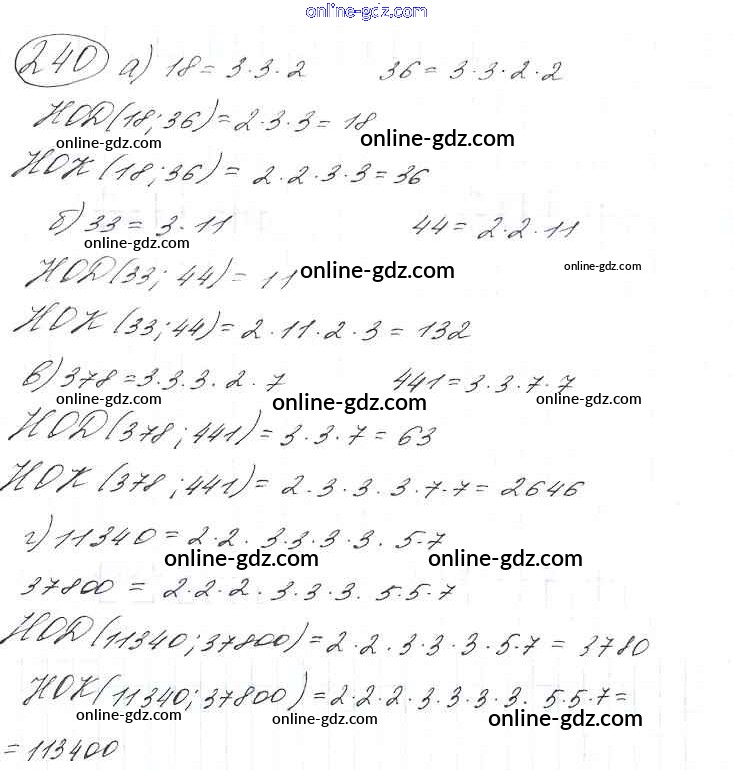 online-gdz.com
240 а) 18 = 3·3·2 36 = 3·3·2·2
НОД(18;36) = 2·3·3 = 18
online-gdz.com online-gdz.com
НОК(18;36) = 2·2·3·3 = 36
б) 33 = 3·11 44 = 2·2·11
online-gdz.com
НОД(33; 44) = 11 online-gdz.com online-gdz.com
НОК(33;44) = 2·11·2·3 = 132
в) 378 = 3·3·3·2·7 441 = 3·3·7·7
online-gdz.com online-gdz.com online-gdz.com
НОД(378;441) = 3·3·7 = 63
НОК(378;441) = 2·3·3·3·7·7 = 2646
г) 11340 = 2·2·3·3·3·3·5·7
online-gdz.com online-gdz.com
37800 = 2·2·2·3·3·3·5·5·7
НОД(11340;37800) = 2·2·3·3·3·5·7 = 3780
НОК(11340;37800) = 2·2·2·3·3·3·3·5·5·7 =
online-gdz.com online-gdz.com online-gdz.com
= 113400